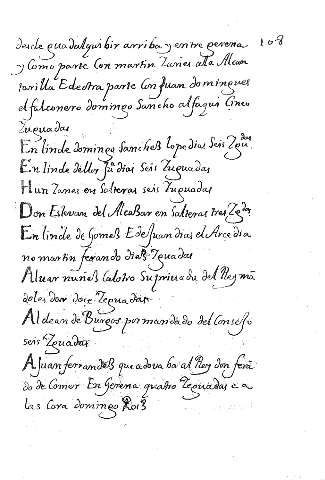 desde guadalquibir arriba y entre perena 108
y Como parte Con martin Zanes alla Alcan
tarilla E de otra parte Con Juan domingues
el falconero domingo Sancho alfaqui Cinco
Zuguadas
En linde domingo Sancheß lope dias Seis Zgu das
En linde dellos Jū dias Seis Zuguadas
Hun Zanes en Salteras Seis Zuguadas
Don Estevan del Alcasar en Salteras tres Zg das
En linde de Gomeß E de Juan dias el Arcedia
no martin ferando dieß Zguadas
Aluar nuneß Calotro Su priuada del Rey mā
doles dar doce Zeguadas
Al dean de Burgos por mandado del Consejo
seis Zguadas
A Juan ferrandeß que adoua ba al Rey don ferā
do de Comer En Gerena quatro Zeguadas e a
las Cora domingo Roiß